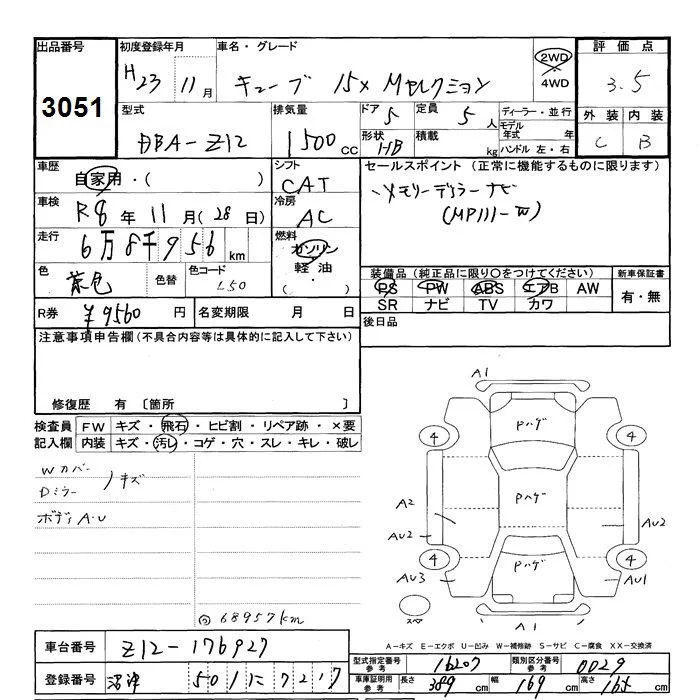 出品番号
3051
初度登録年月
H23年11月
車名・グレード
キューブ 15X Mセレクション
2WD
4WD
評価点
3.5
外装 内装
C B
型式
DBA-Z12
排気量
1500cc
ドア 5
形状 HB
定員 5人
積載 kg
ディーラー・並行
モデル年式 年
ハンドル 左・右
車歴
自家用・( )
車検
R8年11月(28日)
走行
6万8千956km
色
茶色
色替
色コード
L50
シフト
CAT
冷房
AC
燃料
ガソリン
軽油
( ・ )
セールスポイント(正常に機能するものに限ります)
・メモリーデッラーナビ
(MP111-W)
装備品(純正品に限り○をつけてください)
PS PW ABS エアB AW
SR ナビ TV カワ
新車保証書
有・無
R券 ¥9560円
名変期限 月 日
後日品
注意事項申告欄(不具合内容等は具体的に記入して下さい)
修復歴 有〔箇所 〕
検査員記入欄
FW キズ・飛石・ヒビ割・リペア跡・×要
内装 キズ・汚レ・コゲ・穴・スレ・キレ・破レ
Wカバー
Dミラー ノキズ
ボディA.U
68957km
A1
Pハゲ
4 4
Pハゲ
A2
AU2 AU2
Pハゲ
4 4
AU3 AU1
スペア
A1
A-キズ E-エクボ U-凹み W-補修跡 S-サビ C-腐食 XX-交換済
車台番号 Z12-176927
登録番号 沼津 501 に 7217
型式指定番号 参考 16207
類別区分番号 参考 0029
車庫証明用 参考 長さ 389cm 幅 169cm 高さ 165cm